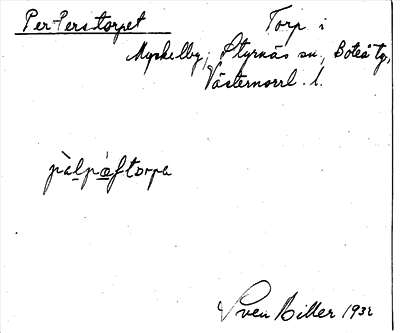 Per-Perstorpet Torp i
Myckelby, Styrnäs sn, Boteå tg,
Västernorrl. l.
pàlpæftorpa
Sven Biller 1932